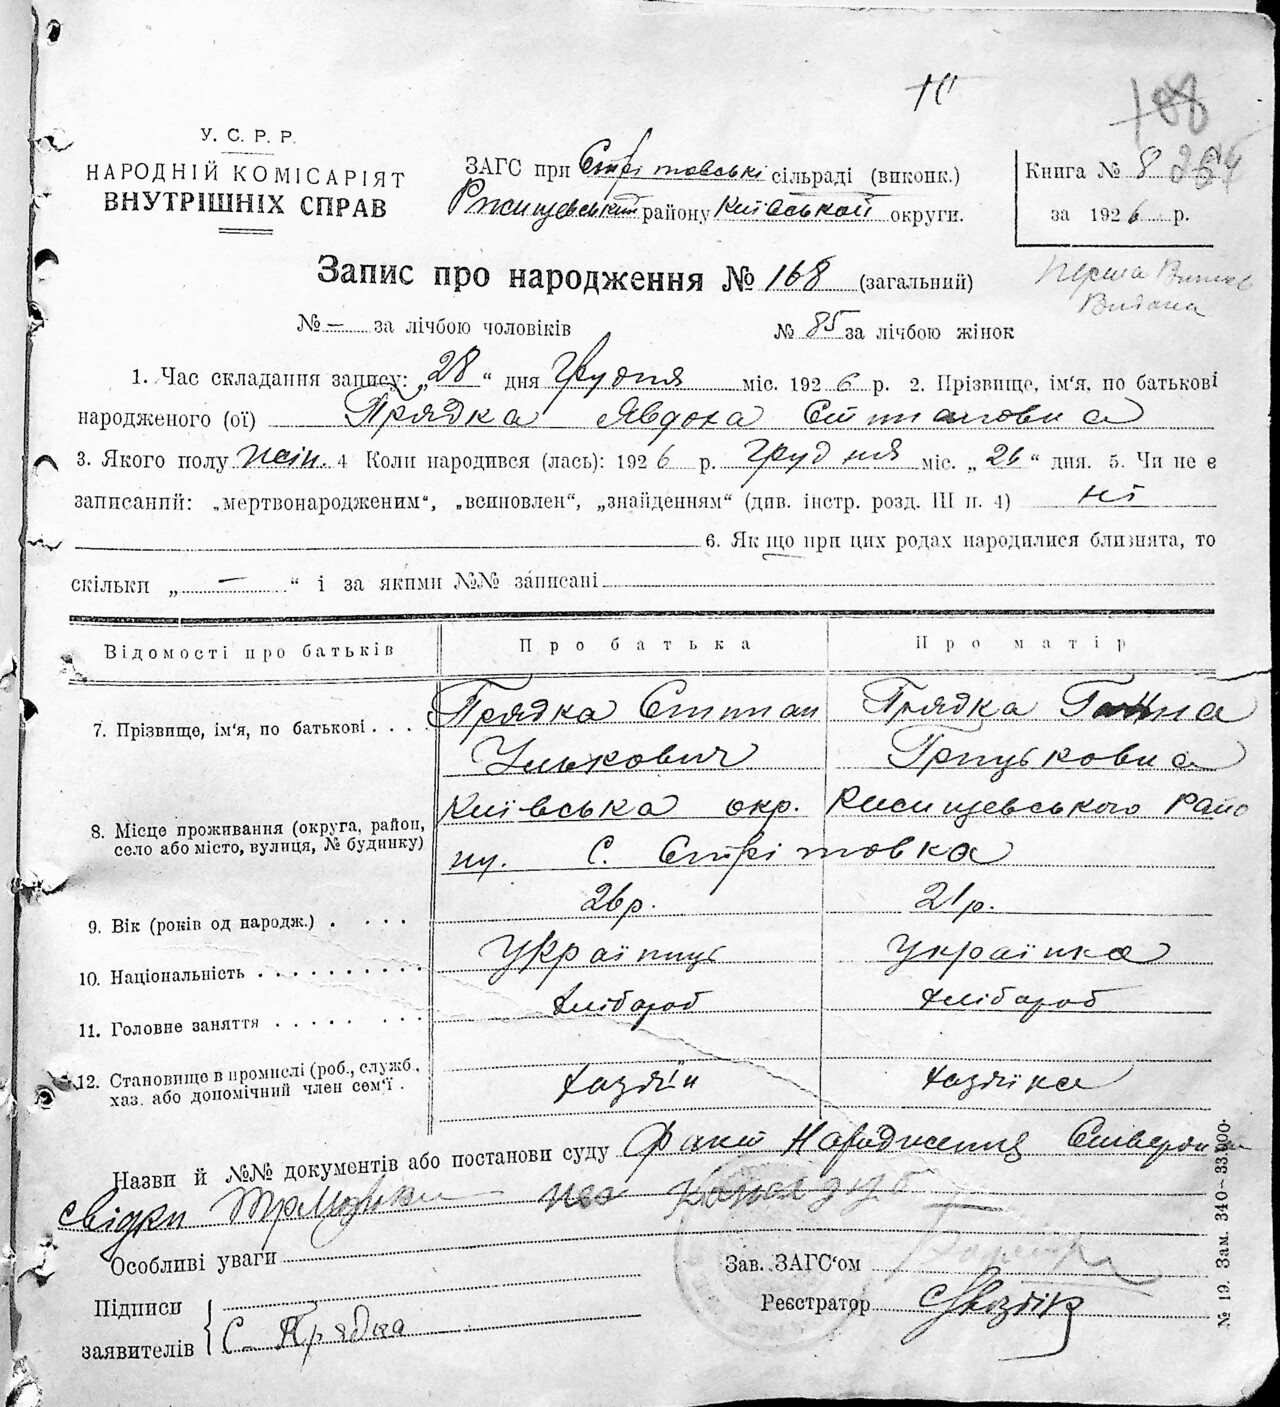 У. С. Р. Р.
НАРОДНІЙ КОМІСАРІЯТ
ВНУТРІШНІХ СПРАВ
ЗАГС при Стрітовські сільраді (виконк.)
Ржищевський району Київськой округи.
Книга № 8
за 1926 р.
Запис про народження № 168 (загальний)
Перша
Видана
№ — за лічбою чоловіків № 85 за лічбою жінок
1. Час складання запису: „28“ дня Грудня міс. 1926 р. 2. Прізвище, ім'я, по батькові
народженого (ої) Прядка Явдоха Степановна
3. Якого полу жін. 4 Коли народився (лась): 1926 р. грудня міс. „26“ дня. 5. Чи не є
записаний: „мертвонародженим“, „всиновлен“, „знайденням“ (див. інстр. розд. III п. 4) ні
6. Як що при цих родах народилися близнята, то
скільки „ — “ і за якими №№ записані
Відомості про батьків Про батька Про матір
7. Прізвище, ім'я, по батькові . . . . Прядка Степан Прядка Ганна
Улькович Грицьковна
8. Місце проживання (округа, район, село або місто, вулиця, № будинку) Київська окр. Ржищевського райо
ну. С. Стрітовка
9. Вік (років од народж.) . . . . 26р. 21р.
10. Національність . . . . . . . . . . Українць Українка
11. Головне заняття . . . . . . . . Хлібороб Хлібороб
12. Становище в промислі (роб., служб., хаз. або допомічний член сем'ї . Хазяїн Хазяїка
Назви й №№ документів або постанови суду Факт Народження
свідки
Особливі уваги
Зав. ЗАГС'ом
Підписи
заявителів
С. Прядка
Реєстратор
№ 19. Зам. 340–33.000